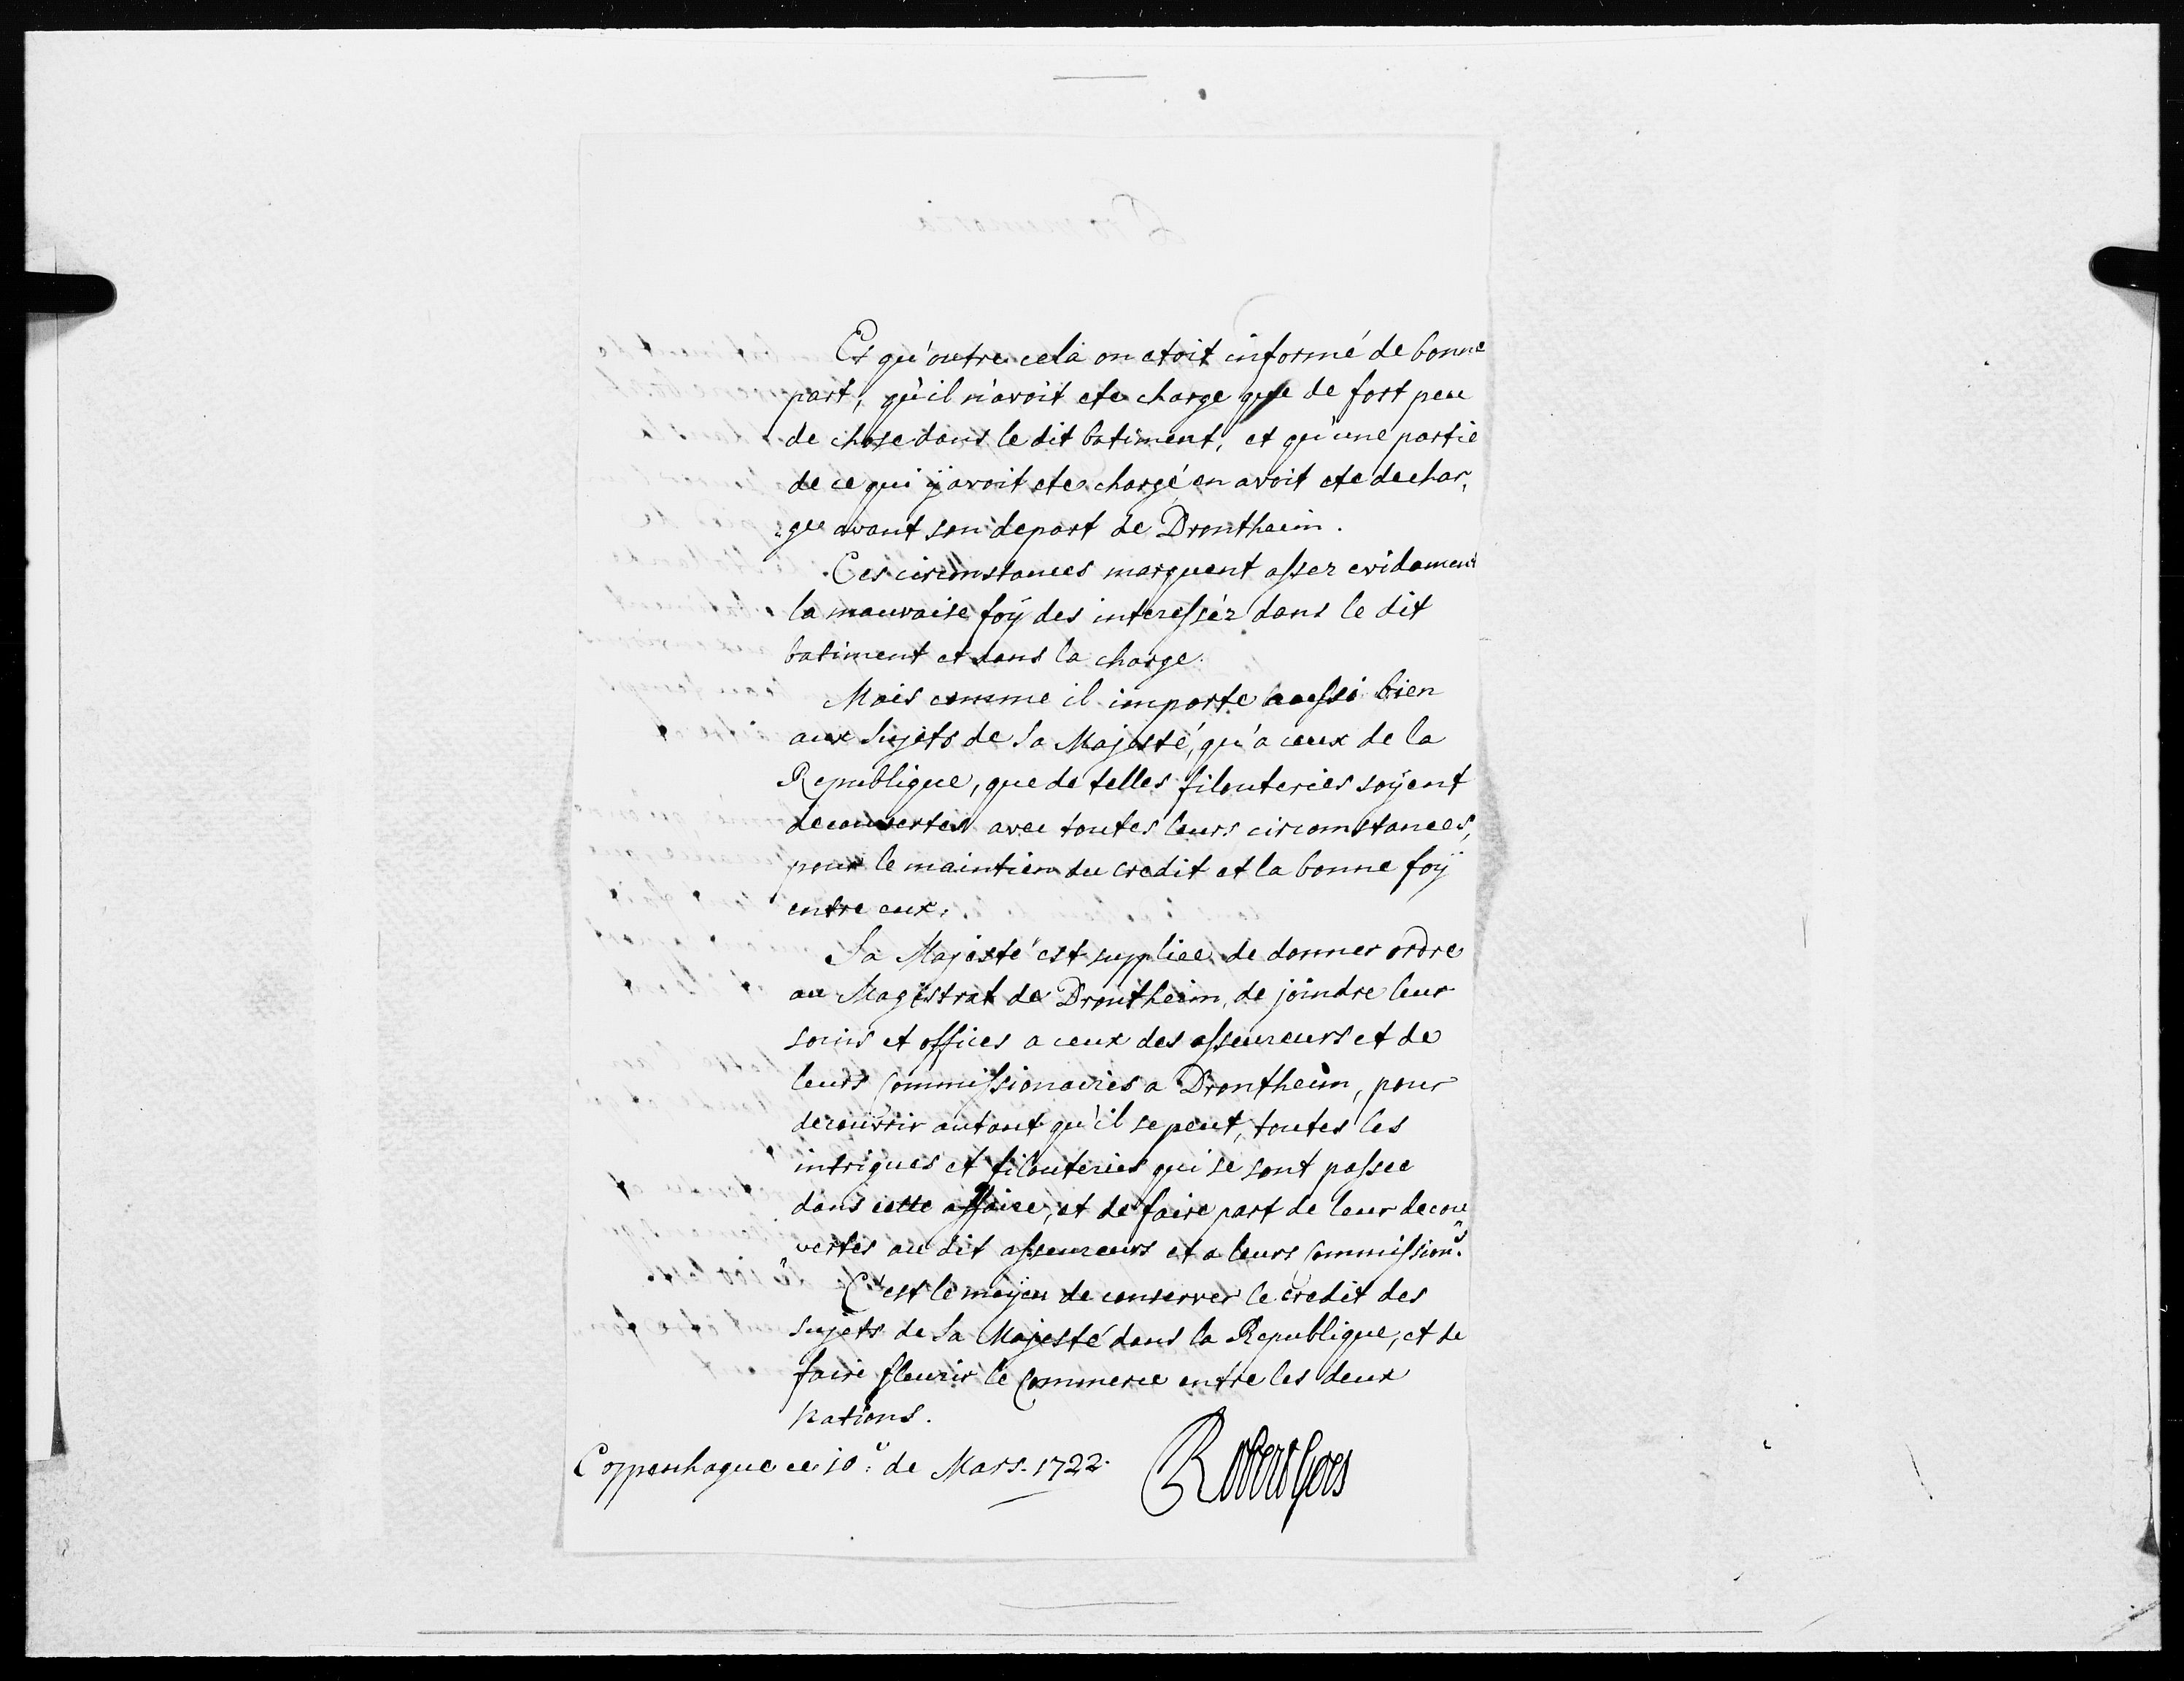 Et qu'outre celà on etoit informé de bonne
part, qu'il n'avoit ete charge que de fort peu
de chose dans le dit batiment, et qu'une partie
de ce qui ÿ avoit ete chargé en avoit ete dechar,
„ge avant son depart de Drontheim.
Ces circonstances marquent assez evidament
la mauvaise foÿ des interessèz dans le dit
batiment et dans la charge.
Mais comme il importe aussi bien
aux Sujets de Sa Majesté, qu'a ceux de la
Republique, que de telles filouteries soÿent
decouvertes avec toutes leurs circomstances,
pour le maintien du credit et la bonne foÿ
entre eux.
Sa Majesté est suppliee de donner ordre
au Magistrat de Drontheim, de joindre leur
soins et offices a ceux des asseureurs et de
leurs Commissionaires a Drontheim, pour
decouvrir autant qu'il se peut, toutes les
intrigues et filouteries qui se sont passee
dans cette affaire, et de faire part de leur decou„
„vertes au dit asseureurs et a leurs Commission.s
C'est le moÿen de conserver le credit des
sujets de Sa Majesté dans la Republique, et de
faire fleurir le Commerce entre les deux
Nations.
Coppenhague ce 10.e de Mars. 1722. Robert Goes